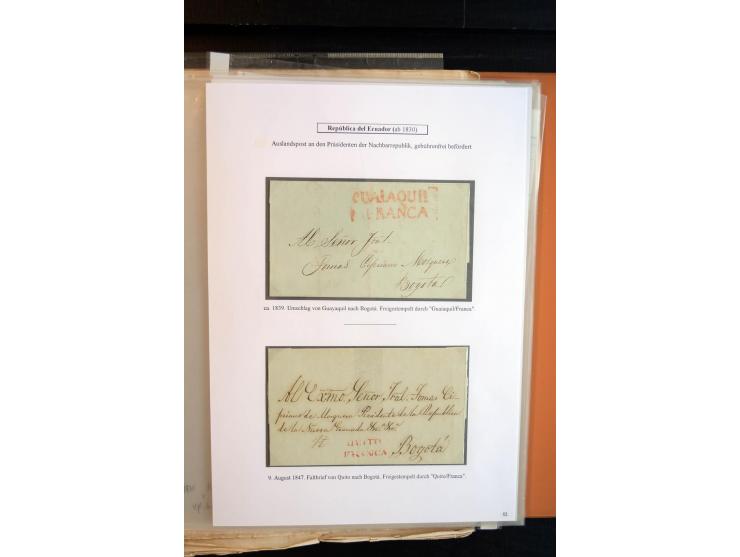 República del Ecuador (ab 1830)
Auslandspost an den Präsidenten der Nachbarrepublik, gebührenfrei befördert
GUAIAQUIL
FRANCA
Al Señor Jral.
Tomas Cipriano Mosquera
Bogotá
ca. 1839. Umschlag von Guayaquil nach Bogotá. Freigestempelt durch "Guaiaquil/Franca".
Al Exmo. Señor Jral. Tomas Ci-
priano de Mosquera Presidente de la Republica
de la Nueva Granada
QUITO
FRANCA
Bogotá
9. August 1847. Faltbrief von Quito nach Bogotá. Freigestempelt durch "Quito/Franca".